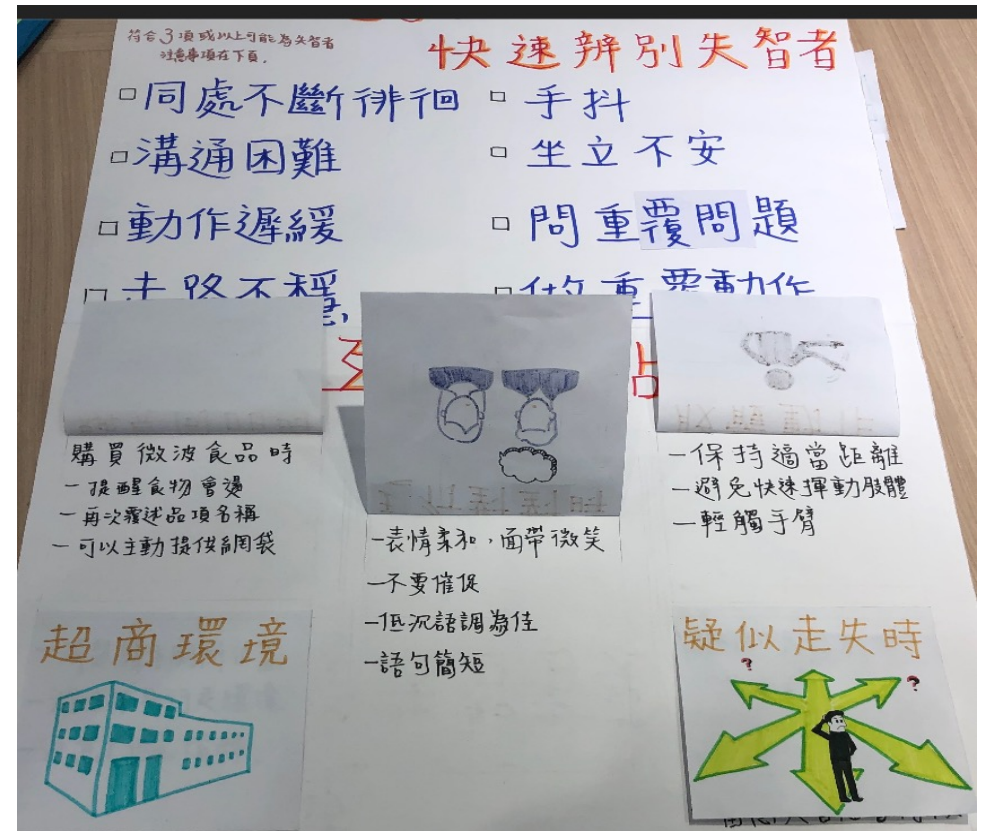 符合3項或以上可能為失智者
注意事項在下頁.
快速辨別失智者
□同處不斷徘徊
□手抖
□溝通困難
□坐立不安
□動作遲緩
□問重覆問題
□走路不穩
□做重覆動作
購買微波食品時
-提醒食物會燙
-再次覆述品項名稱
-可以主動提供網袋
-表情柔和,面帶微笑
-不要催促
-低沉語調為佳
-語句簡短
-保持適當距離
-避免快速揮動肢體
-輕觸手臂
超商環境
疑似走失時
?
?